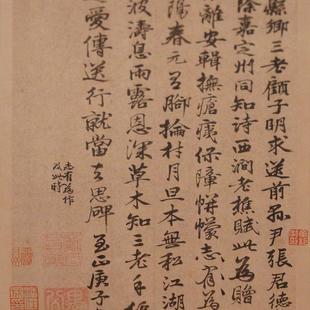 縣鄉三老顧子明求送前孤尹張君德
除嘉定州同知詩西澗老樵賦此為贈
離安輯撫瘡痍保障帡幪志有為
陽春元有腳掄材月旦本無私江湖
波濤息雨露恩深草木知三老手
愛傳送行就當去思碑至正庚子
志有為作
及此時